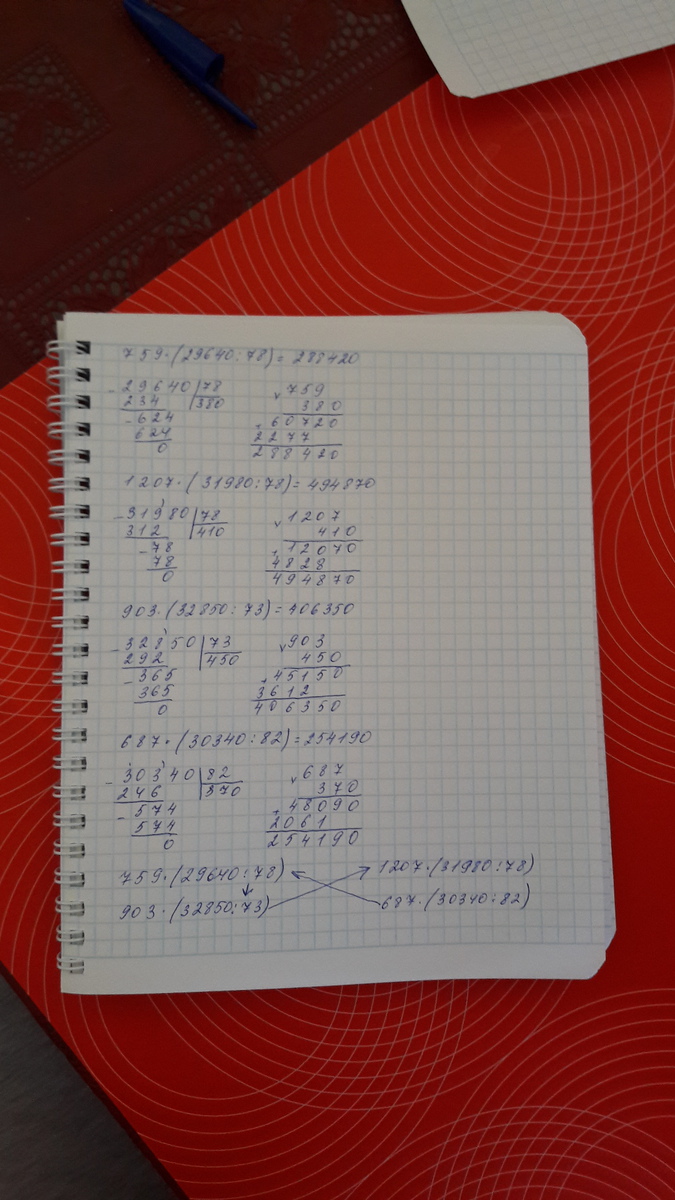 759·(29640:78)=288420
-29640|78 x759
234 380 380
-624 +60720
624 2277
0 288420
1207·(31980:78)=494870
-31980|78 x1207
312 410 410
-78 +12070
78 4828
0 494870
903·(32850:73)=406350
-32850|73 x903
292 450 450
-365 +45150
365 3612
0 406350
687·(30340:82)=254190
-30340|82 x687
246 370 370
-574 +48090
574 2061
0 254190
759·(29640:78) 1207·(31980:78)
903·(32850:73) 687·(30340:82)